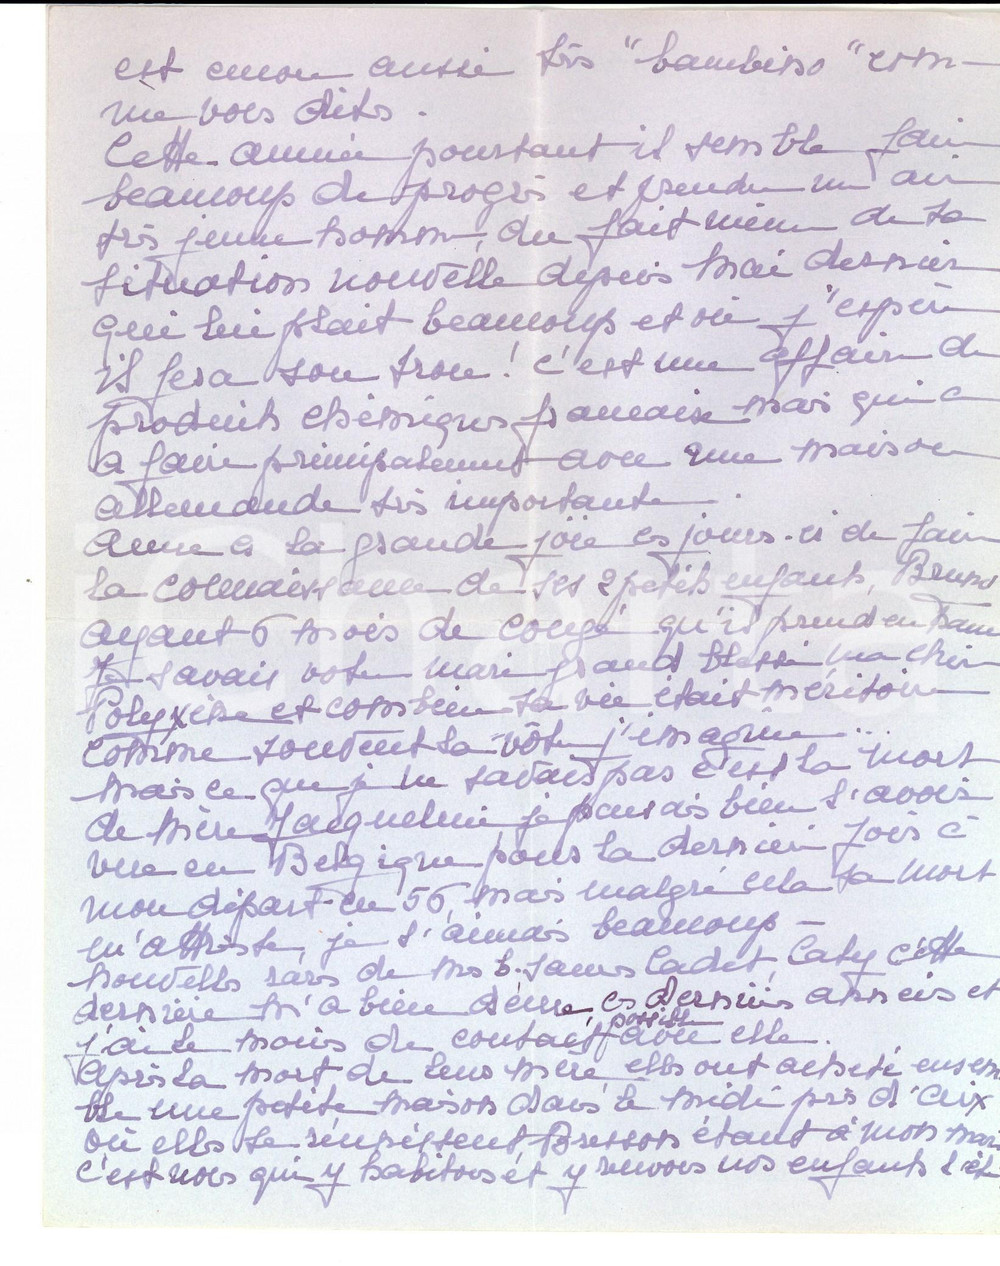 est encore aussi très "bambino" com-
me vous dites.
Cette année pourtant il semble faire
beaucoup de progrès et prendre un air
très jeune homme, du fait même de sa
situation nouvelle depuis Mai dernier
qui lui plait beaucoup et où j'espère
il fera son trou! c'est une affaire de
produits chimiques française mais qui
a faire principalement avec une maison
allemande très importante.
Anne a la grande joie ces jours-ci de faire
la connaissance de ses 2 petits enfants, Bruno
ayant 6 mois de congé qu'il prend en
Je savais votre mari grand blessé ma chère
Polyxène et combien sa vie était méritoire
comme souvent la vôtre j'imagine...
Mais ce que je ne savais pas c'est la mort
de Mère Jacqueline je pensais bien l'avoir
vue en Belgique pour la dernière fois à
mon départ en 56, mais malgré cela sa mort
m'attriste, je l'aimais beaucoup -
nouvelles rares de Caty cette
dernière m'a bien déçue ces dernières années et
j'ai le moins de contact possible avec elle.
Après la mort de leur mère elles ont acheté ensem
ble une petite maison dans le midi près d'Aix
où elles se Bresson étant à mon mari
c'est nous qui y habitons et y recevons nos enfants l'été
iCharta